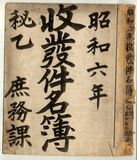 昭和六年
收發件名簿
秘乙
庶務課